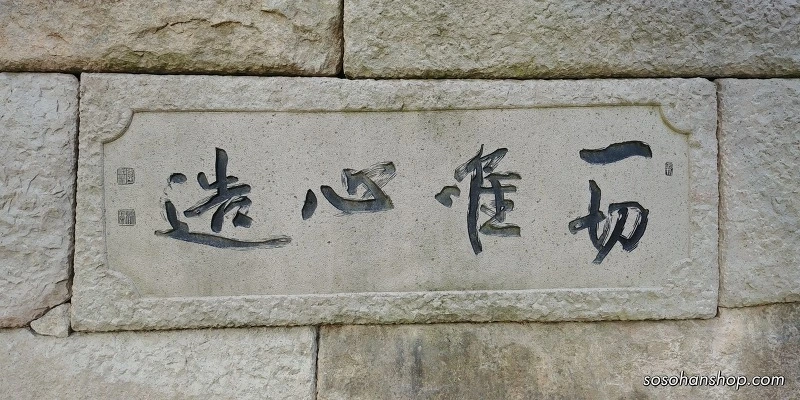 一切唯心造
sosohanshop.com